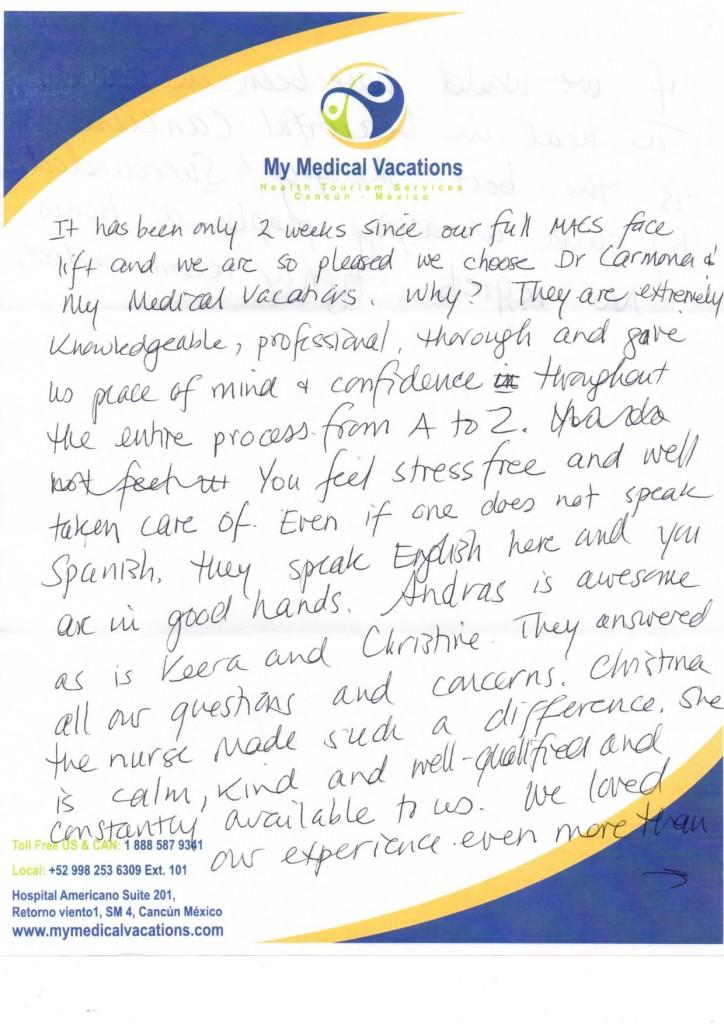 My Medical Vacations
Health Tourism Services
Cancún - México
It has been only 2 weeks since our full MACS face
lift and we are so pleased we choose Dr Carmona &
My Medical Vacations. Why? They are extremely
Knowledgeable, professional, thorough and gave
us peace of mind & confidence in throughout
the entire process from A to Z. You do
not feel You feel stress free and well
taken care of. Even if one does not speak
Spanish, they speak English here and you
are in good hands. Andras is awesome
as is Veera and Christine. They answered
all our questions and concerns. Christina
the nurse made such a difference. She
is calm, kind and well-qualified and
constantly available to us. We loved
our experience even more than
→
Toll Free US & CAN: 1 888 587 9341
Local: +52 998 253 6309 Ext. 101
Hospital Americano Suite 201,
Retorno viento1, SM 4, Cancún México
www.mymedicalvacations.com